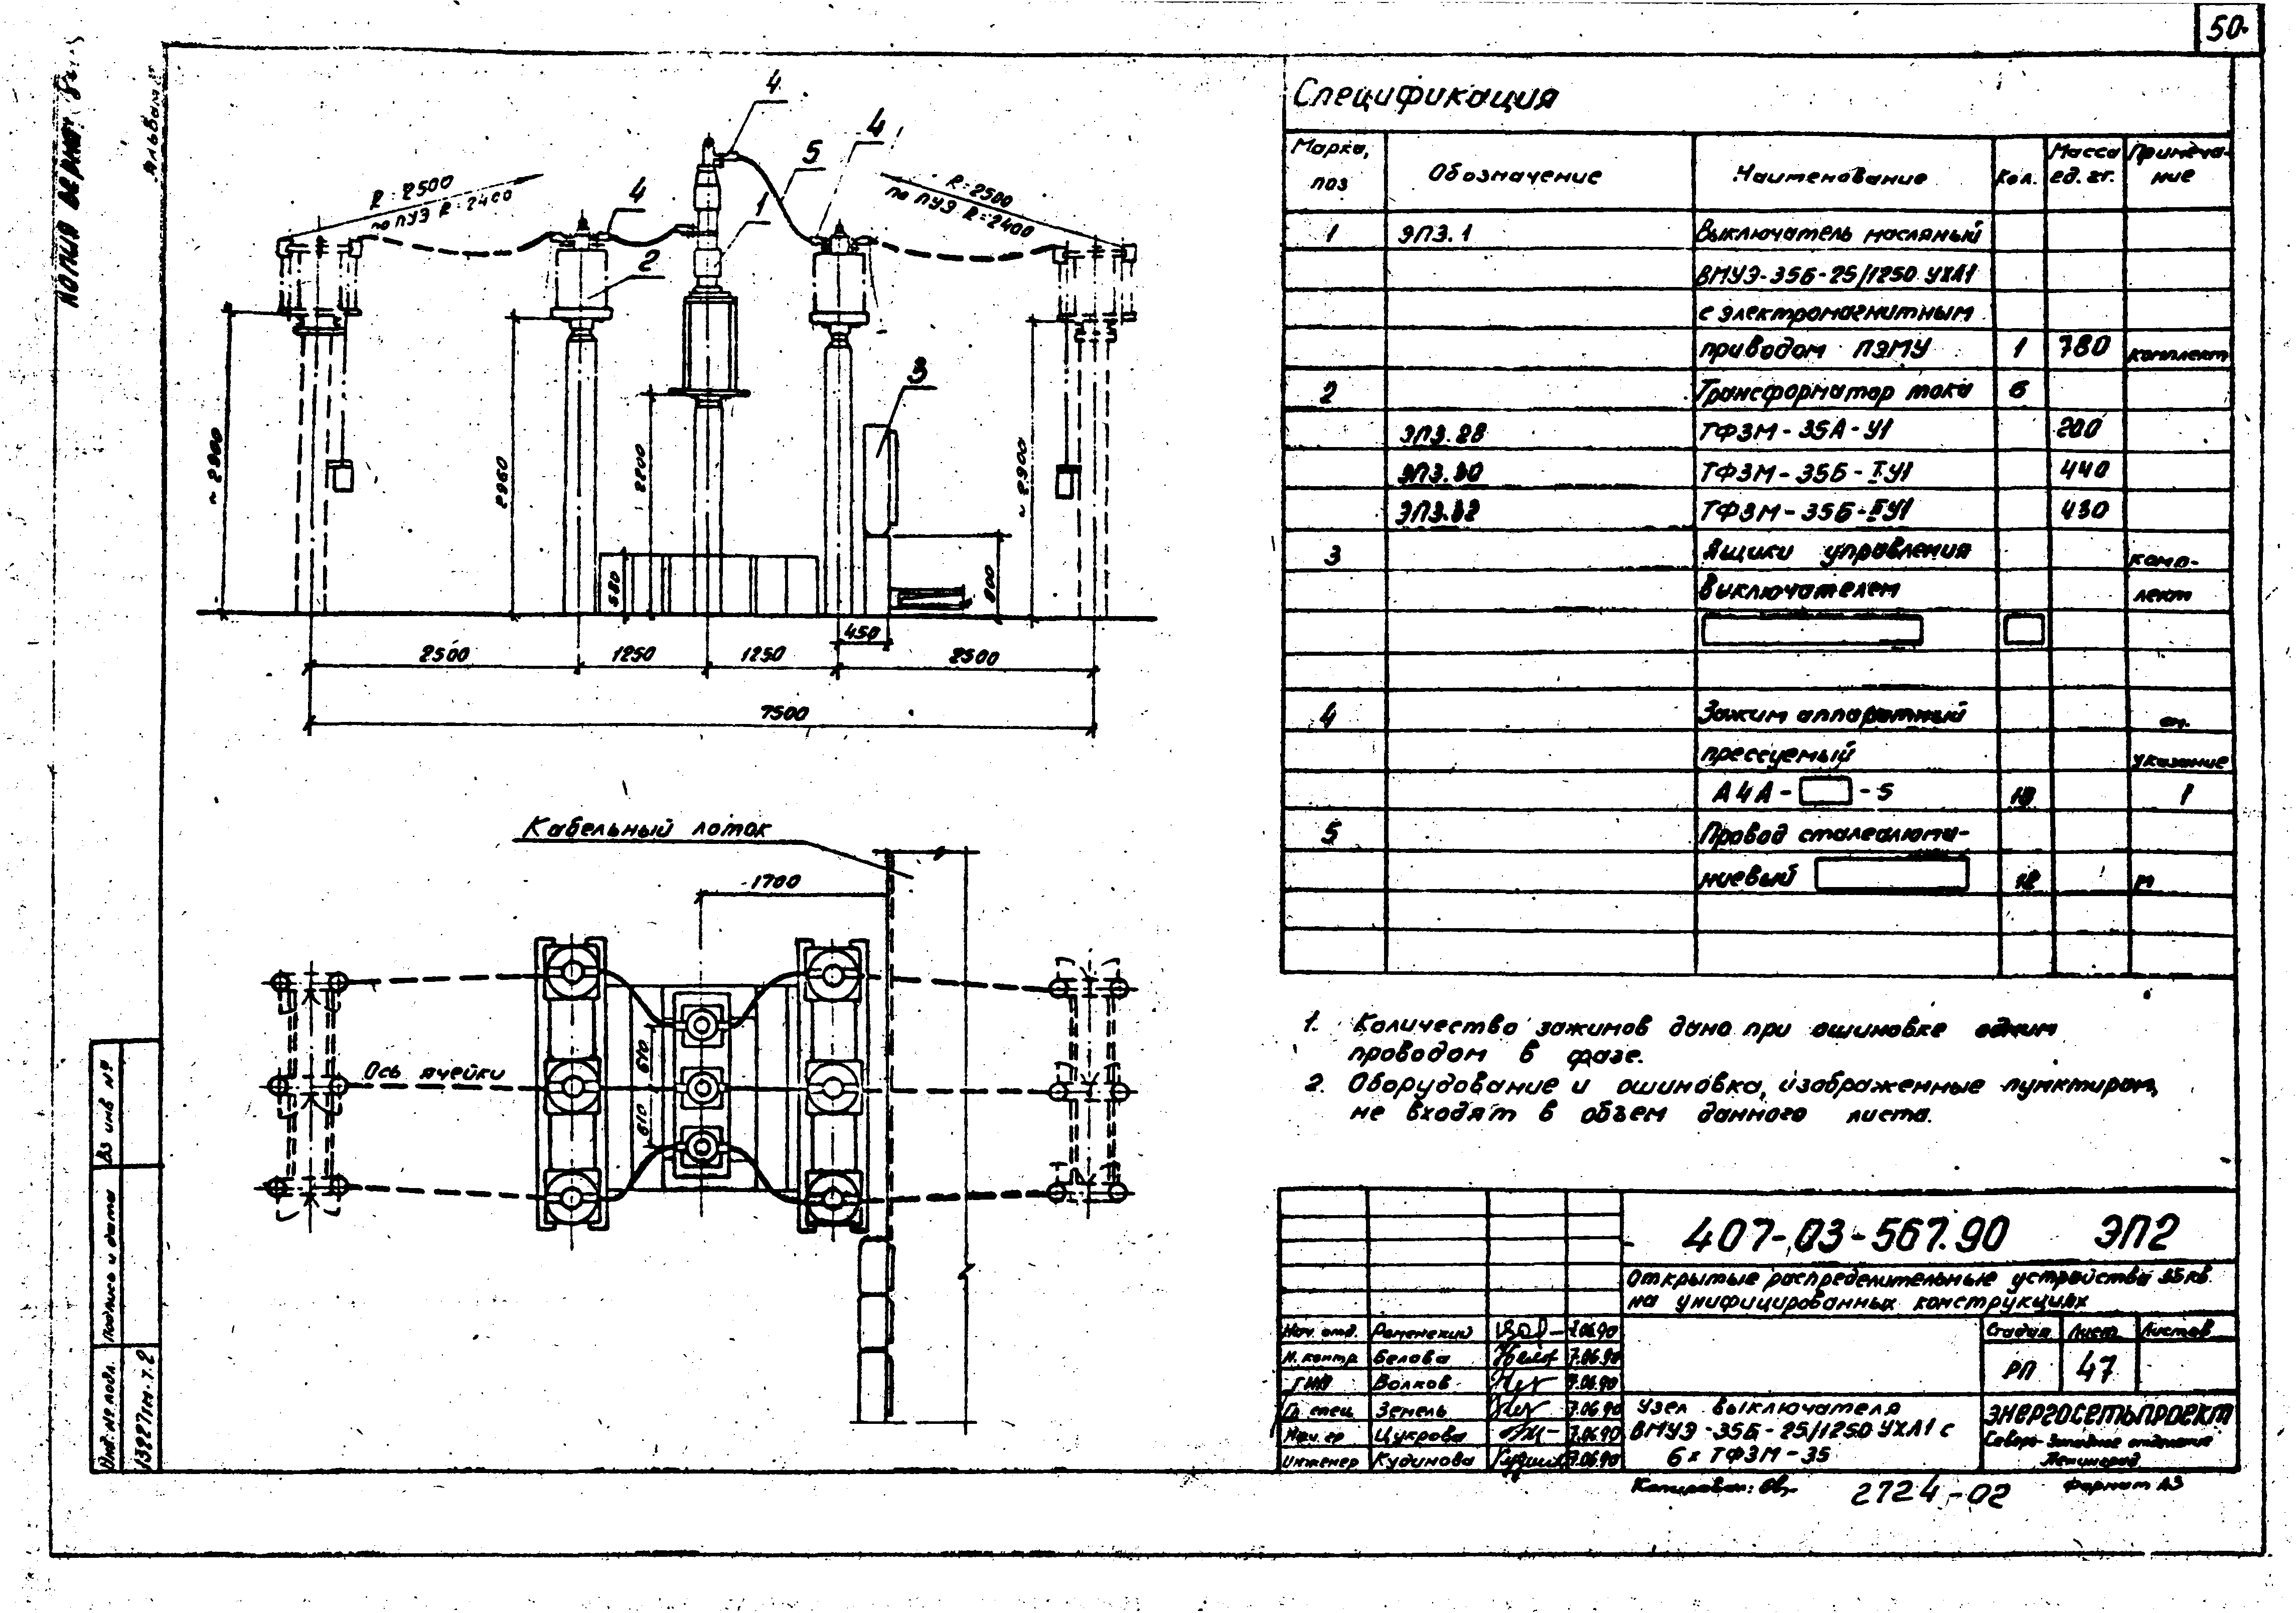 50
КОПИЯ ВЕРНА:
Альбом
4
4
5
R=2500
по ПУЭ R=2400
4
R=2500
по ПУЭ R=2400
1
2
3
~2900
2960
2200
580
800
~2900
450
2500
1250
1250
2500
7500
Кабельный лоток
1700
Ось ячейки
610
610
Спецификация
Марка, поз
Обозначение
Наименование
Кол.
Масса ед. кг.
Примечание
1 ЭПЗ.1 Выключатель масляный
ВМУЭ-35Б-25/1250 УХЛ1
с электромагнитным
приводом ПЭМУ 1 780 комплект
2 Трансформатор тока 6
ЭПЗ.28 ТФЗМ-35А-У1 200
ТФЗМ-35Б-IУ1 440
ТФЗМ-35Б-IIУ1 430
3 Ящики управления комп-
выключателем лект
4 Зажим аппаратный см.
прессуемый указание
А4А- -5 1
5 Провод сталеалюми-
ниевый м
1. Количество зажимов дано при ошиновке одним
проводом в фазе.
2. Оборудование и ошиновка, изображенные пунктиром,
не входят в объем данного листа.
407-03-567.90 ЭП2
Открытые распределительные устройства 35кВ
на унифицированных конструкциях
Нач. отд. Роменский 7.06.90
Н. контр. Белова 7.06.90
ГИП Волков 7.06.90
Гл. спец. Земель 7.06.90
Нач. гр. Цукрова 7.06.90
Инженер Кудинова 7.06.90
Стадия Лист Листов
РП 47
Узел выключателя
ВМУЭ-35Б-25/1250 УХЛ1 с
6х ТФЗМ-35
ЭНЕРГОСЕТЬПРОЕКТ
Северо-Западное отделение
Ленинград
Копировал:
2724-02
Формат А3
Вз инв №
Подпись и дата
Инв.№ подл.
13227тм-т.2